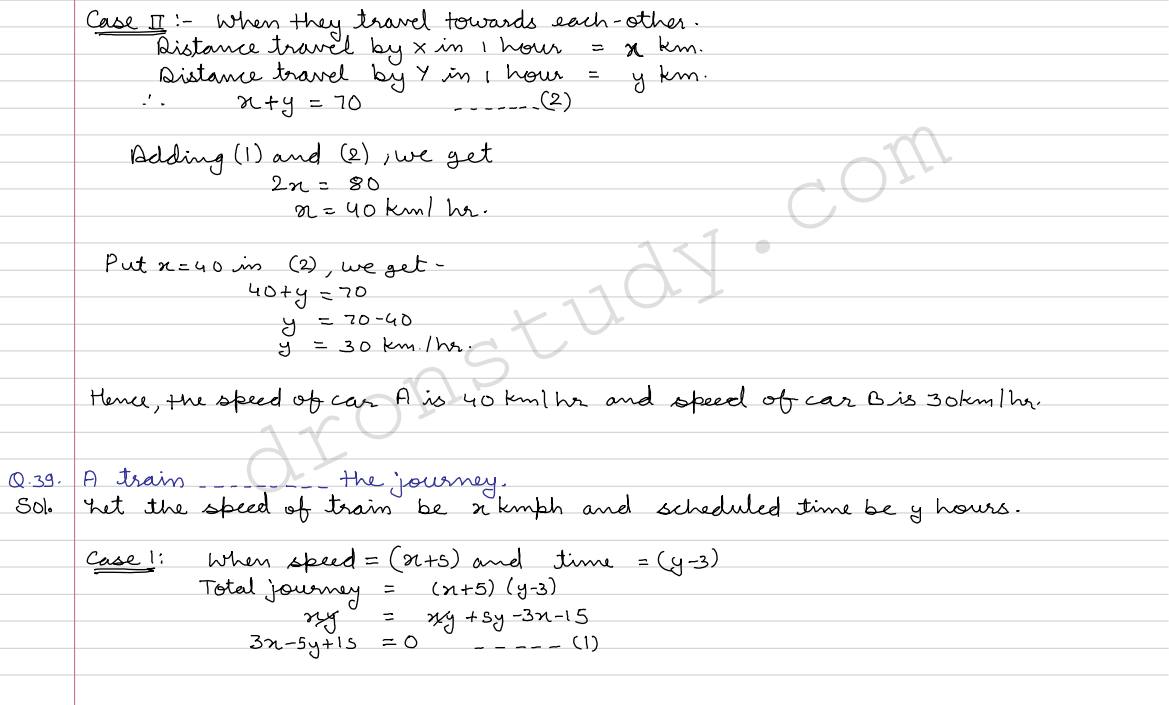 Case II :- When they travel towards each-other.
Distance travel by X in 1 hour = x km.
Distance travel by Y in 1 hour = y km.
∴ x+y = 70 -------(2)
Adding (1) and (2), we get
2x = 80
x = 40 km/ hr.
Put x=40 in (2), we get -
40+y = 70
y = 70-40
y = 30 km./hr.
Hence, the speed of car A is 40 km/hr and speed of car B is 30km/hr.
Q.39. A train --------- the journey.
Sol. Let the speed of train be x kmph and scheduled time be y hours.
Case 1: When speed = (x+5) and time = (y-3)
Total journey = (x+5) (y-3)
xy = xy +5y -3x-15
3x-5y+15 = 0 ----- (1)
dronstudy.com